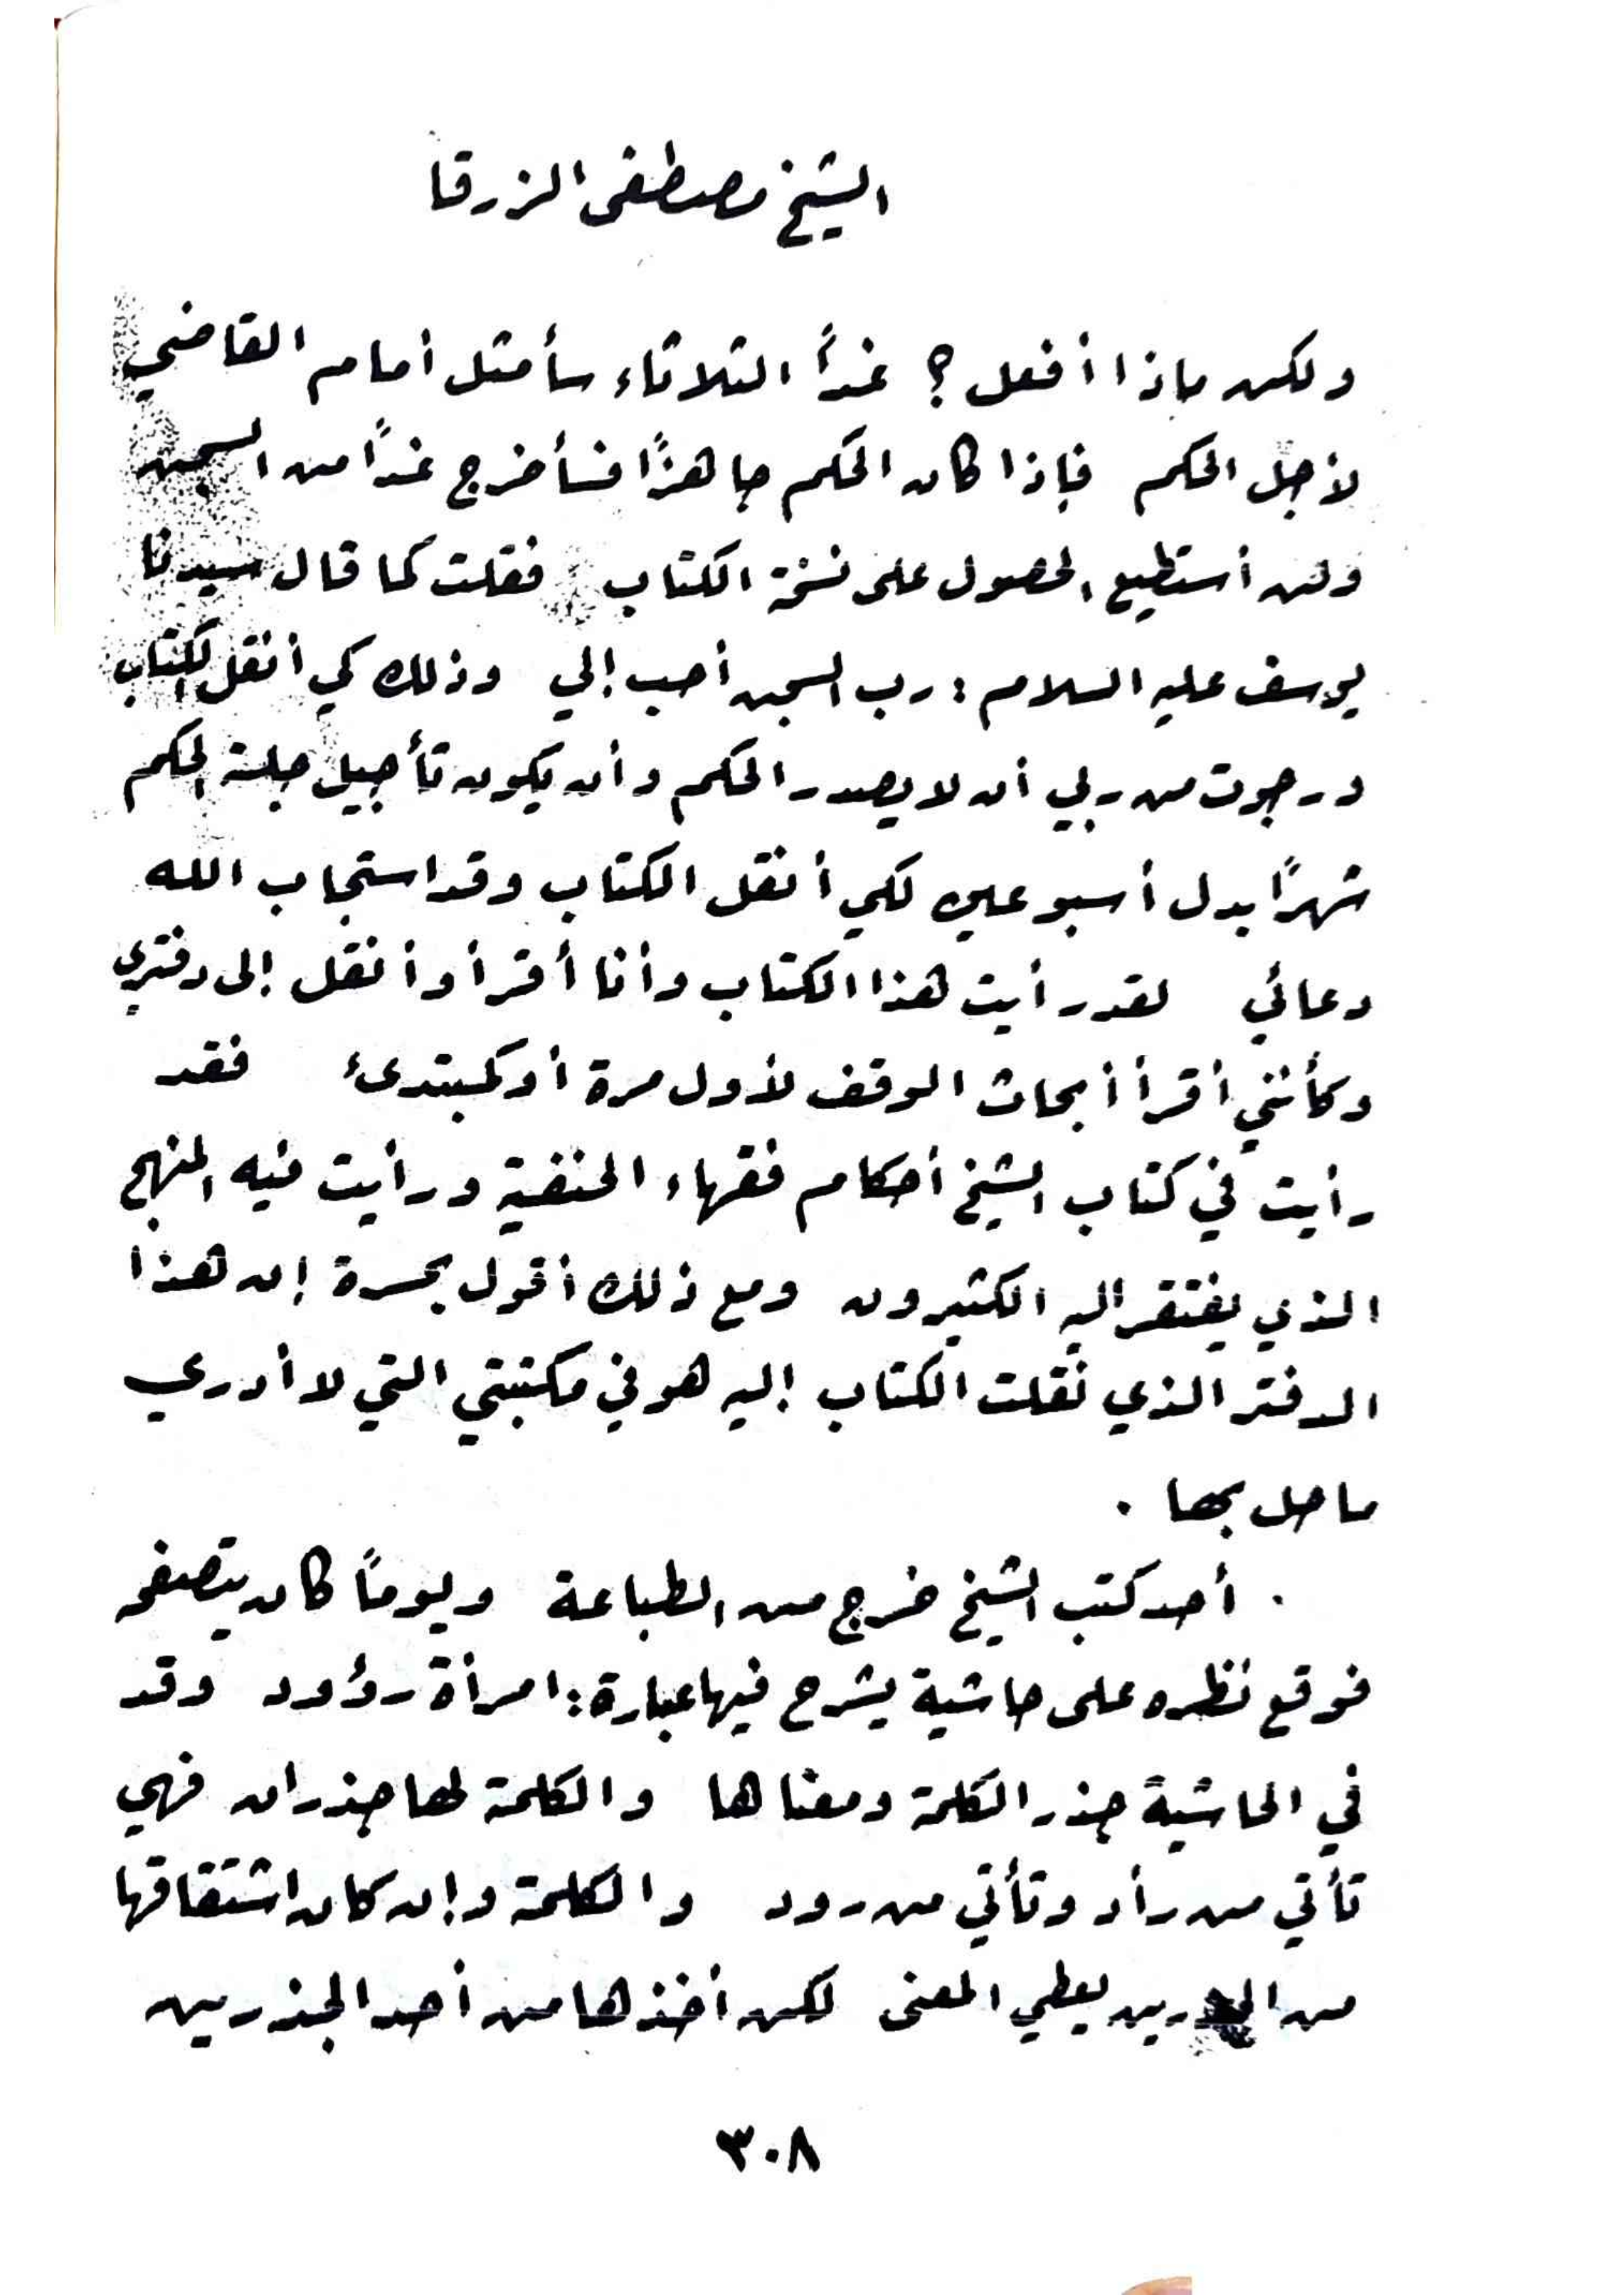 الشيخ مصطفى الزرقا
ولكن ماذا أفعل ؟ غداً الثلاثاء سأمثل أمام القاضي
لأجل الحكم فإذا كان الحكم جاهزًا فسأخرج غدًا من السجن
ولن أستطيع الحصول على نسخة الكتاب فقلت كما قال سيدنا
يوسف عليه السلام : رب السجن أحب إلي وذلك كي أنقل الكتاب
ورجوت من ربي أن لا يصدر الحكم وأن يكون تأجيل جلسة الحكم
شهرًا بدل أسبوعين لكي أنقل الكتاب وقد استجاب الله
دعائي لقد رأيت هذا الكتاب وأنا أقرأ وأنقل إلى دفتري
وكأنني أقرأ أبحاث الوقف لأول مرة أو كمبتدئ فقد
رأيت في كتاب الشيخ أحكام فقهاء الحنفية ورأيت فيه المنهج
الذي يفتقر إليه الكثيرون ومع ذلك أقول بحسرة إن هذا
الدفتر الذي نقلت الكتاب إليه هو في مكتبتي التي لا أدري
ما حل بها .
. أحد كتب الشيخ خرج من الطباعة ويومًا كان يتصفحه
فوقع نظره على حاشية يشرح فيها عبارة : امرأة رؤود وقد
في الحاشية جذر الكلمة ومعناها والكلمة لها جذران فهي
تأتي من رأد وتأتي من رود والكلمة وإن كان اشتقاقها
من الجذرين يعطي المعنى لكن أخذها من أحد الجذرين
٣٠٨